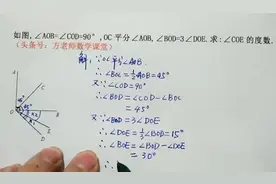 如图,∠AOB=∠COD=90°,OC平分∠AOB,∠BOD=3∠DOE.求:∠COE的度数.
(头条号:方老师数学课堂)
解:∵OC平分∠AOB
∴∠BOC=½∠AOB=45°
又∵∠COD=90°
∴∠BOD=∠COD-∠BOC
=45°
又∵∠BOD=3∠DOE
∴∠DOE=⅓∠BOD=15°
∴∠BOE=∠BOD-∠DOE
=30°
∴
A
C
O
B
E
D